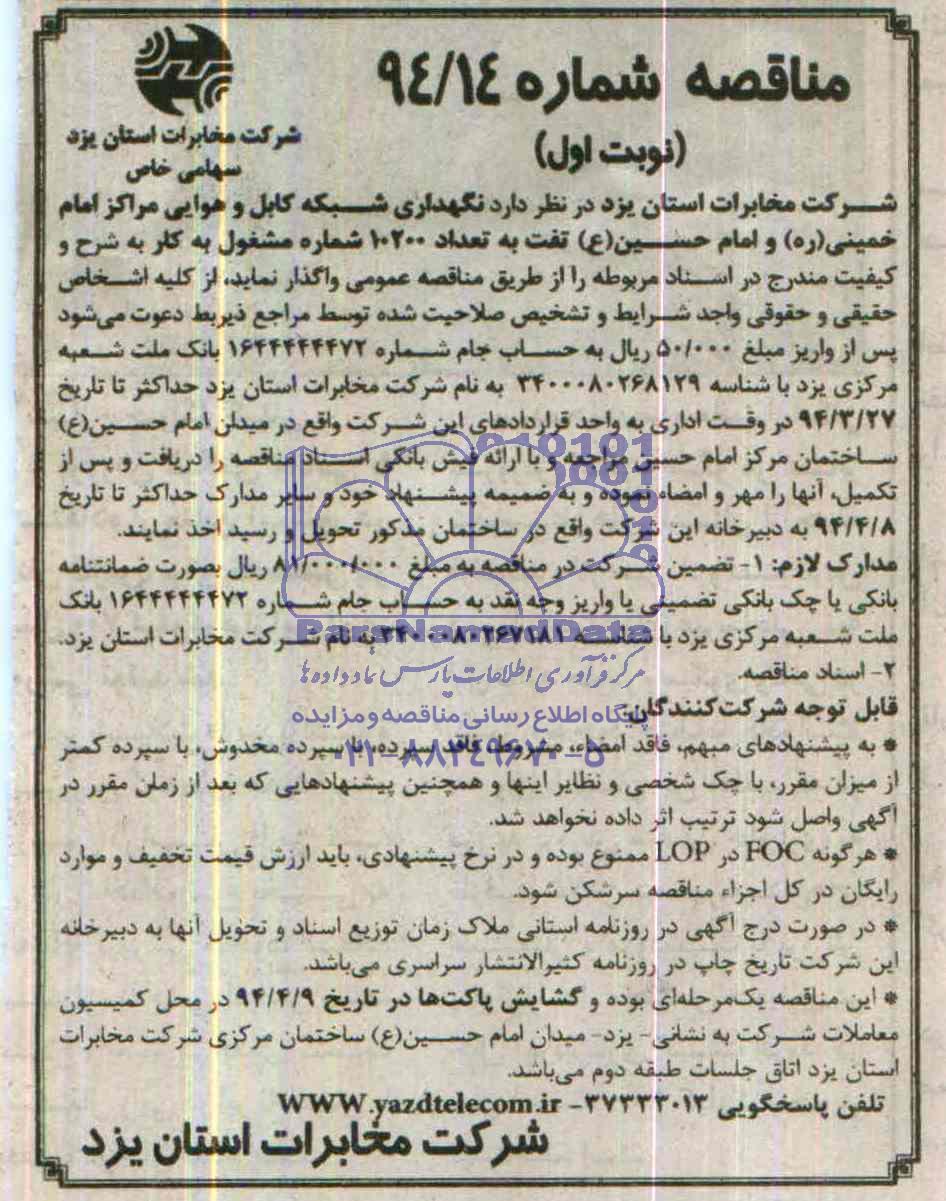 مناقصه شماره ۹۴/۱۴
(نوبت اول)
شرکت مخابرات استان یزد
سهامی خاص
شرکت مخابرات استان یزد در نظر دارد نگهداری شبکه کابل و هوایی مراکز امام
خمینی(ره) و امام حسین(ع) تفت به تعداد ۱۰۲۰۰ شماره مشغول به کار به شرح و
کیفیت مندرج در اسناد مربوطه را از طریق مناقصه عمومی واگذار نماید، از کلیه اشخاص
حقیقی و حقوقی واجد شرایط و تشخیص صلاحیت شده توسط مراجع ذیربط دعوت می‌شود
پس از واریز مبلغ ۵۰/۰۰۰ ریال به حساب جام شماره ۱۶۴۴۴۴۴۴۷۲ بانک ملت شعبه
مرکزی یزد با شناسه ۳۴۰۰۰۸۰۲۶۸۱۲۹ به نام شرکت مخابرات استان یزد حداکثر تا تاریخ
۹۴/۳/۲۷ در وقت اداری به واحد قراردادهای این شرکت واقع در میدان امام حسین(ع)
ساختمان مرکز امام حسین مراجعه و با ارائه فیش بانکی اسناد مناقصه را دریافت و پس از
تکمیل، آنها را مهر و امضاء نموده و به ضمیمه پیشنهاد خود و سایر مدارک حداکثر تا تاریخ
۹۴/۴/۸ به دبیرخانه این شرکت واقع در ساختمان مذکور تحویل و رسید اخذ نمایند.
مدارک لازم: ۱- تضمین شرکت در مناقصه به مبلغ ۸۱/۰۰۰/۰۰۰ ریال بصورت ضمانتنامه
بانکی یا چک بانکی تضمینی یا واریز وجه نقد به حساب جام شماره ۱۶۴۴۴۴۴۴۷۲ بانک
ملت شعبه مرکزی یزد با شناسه ۳۴۰۰۰۸۰۲۶۷۱۸۱ به نام شرکت مخابرات استان یزد.
۲- اسناد مناقصه.
قابل توجه شرکت‌کنندگان:
* به پیشنهادهای مبهم، فاقد امضاء، مشروط، فاقد سپرده، با سپرده مخدوش، با سپرده کمتر
از میزان مقرر، با چک شخصی و نظایر اینها و همچنین پیشنهادهایی که بعد از زمان مقرر در
آگهی واصل شود ترتیب اثر داده نخواهد شد.
* هرگونه FOC در LOP ممنوع بوده و در نرخ پیشنهادی، باید ارزش قیمت تخفیف و موارد
رایگان در کل اجزاء مناقصه سرشکن شود.
* در صورت درج آگهی در روزنامه استانی ملاک زمان توزیع اسناد و تحویل آنها به دبیرخانه
این شرکت تاریخ چاپ در روزنامه کثیرالانتشار سراسری می‌باشد.
* این مناقصه یک‌مرحله‌ای بوده و گشایش پاکت‌ها در تاریخ ۹۴/۴/۹ در محل کمیسیون
معاملات شرکت به نشانی- یزد- میدان امام حسین(ع) ساختمان مرکزی شرکت مخابرات
استان یزد اتاق جلسات طبقه دوم می‌باشد.
تلفن پاسخگویی ۳۷۲۳۳۰۱۳- WWW.yazdtelecom.ir
شرکت مخابرات استان یزد
ParsNamadData
مرکز فرآوری اطلاعات پارس نماد داده ها
پایگاه اطلاع رسانی مناقصه و مزایده
۰۲۱-۸۸۳۴۹۶۷۰-۵